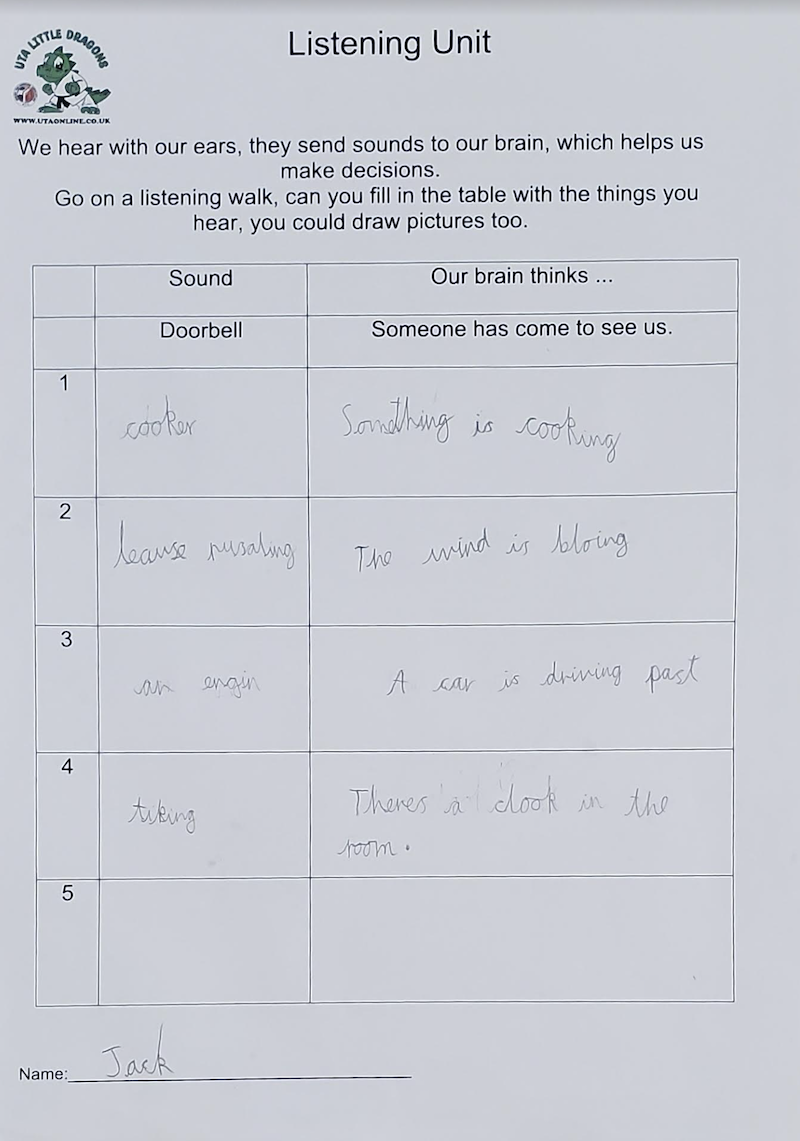 UTA LITTLE DRAGONS
WWW.UTAONLINE.CO.UK
Listening Unit
We hear with our ears, they send sounds to our brain, which helps us
make decisions.
Go on a listening walk, can you fill in the table with the things you
hear, you could draw pictures too.
Sound Our brain thinks ...
Doorbell Someone has come to see us.
1 cooker Something is cooking
2 leause rusaling The wind is bloing
3 an engin A car is driving past
4 tiking Theres a clook in the
room.
5
Name: Jack